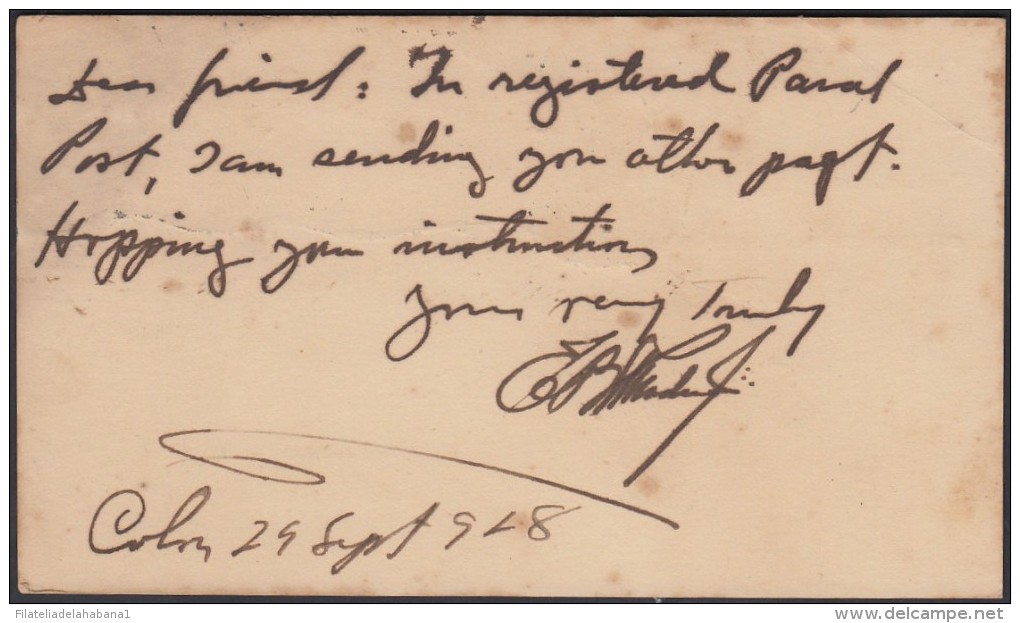 Dear friend: In registered Parcel
Post, I am sending you other paqt.
Hopping your instructions
Yours very truly
Colon 29 Sept 928
Filateliadelahabana1
www.delcampe.net